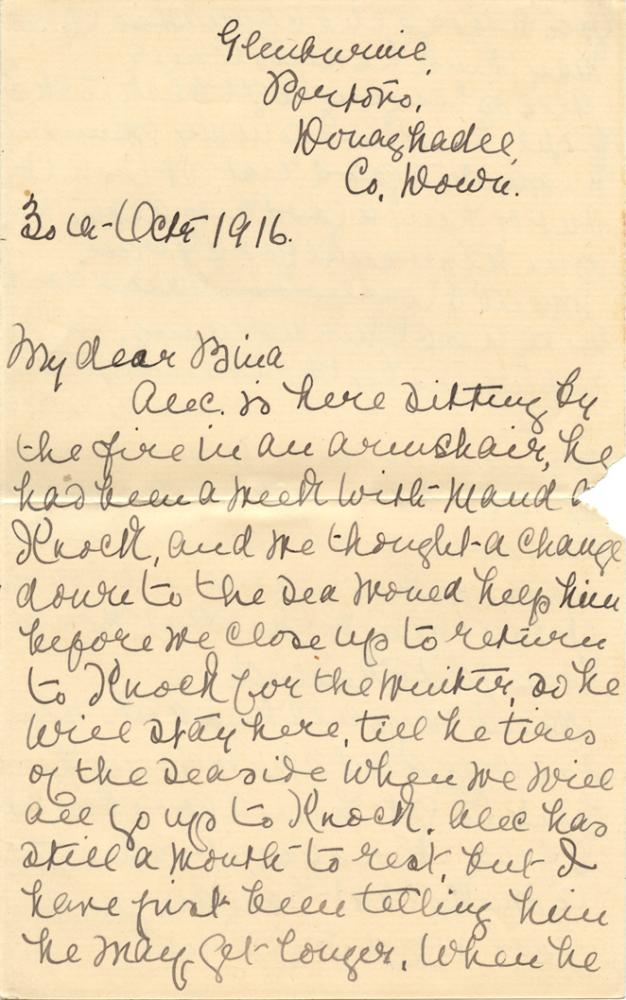 Glenburnie,
Portavo,
Donaghadee,
Co. Down.
30th Octr 1916.
My dear Bina
Alec. is here sitting by
the fire in an armschair, he
had been a week with Maud a
Knock, and we thought a change
down to the sea would help him
before we close up to return
to Knock for the winter, so he
will stay here, till he tires
of the seaside when we will
all go up to Knock. Alec has
still a month to rest, but I
have just been telling him
he may get longer. When he